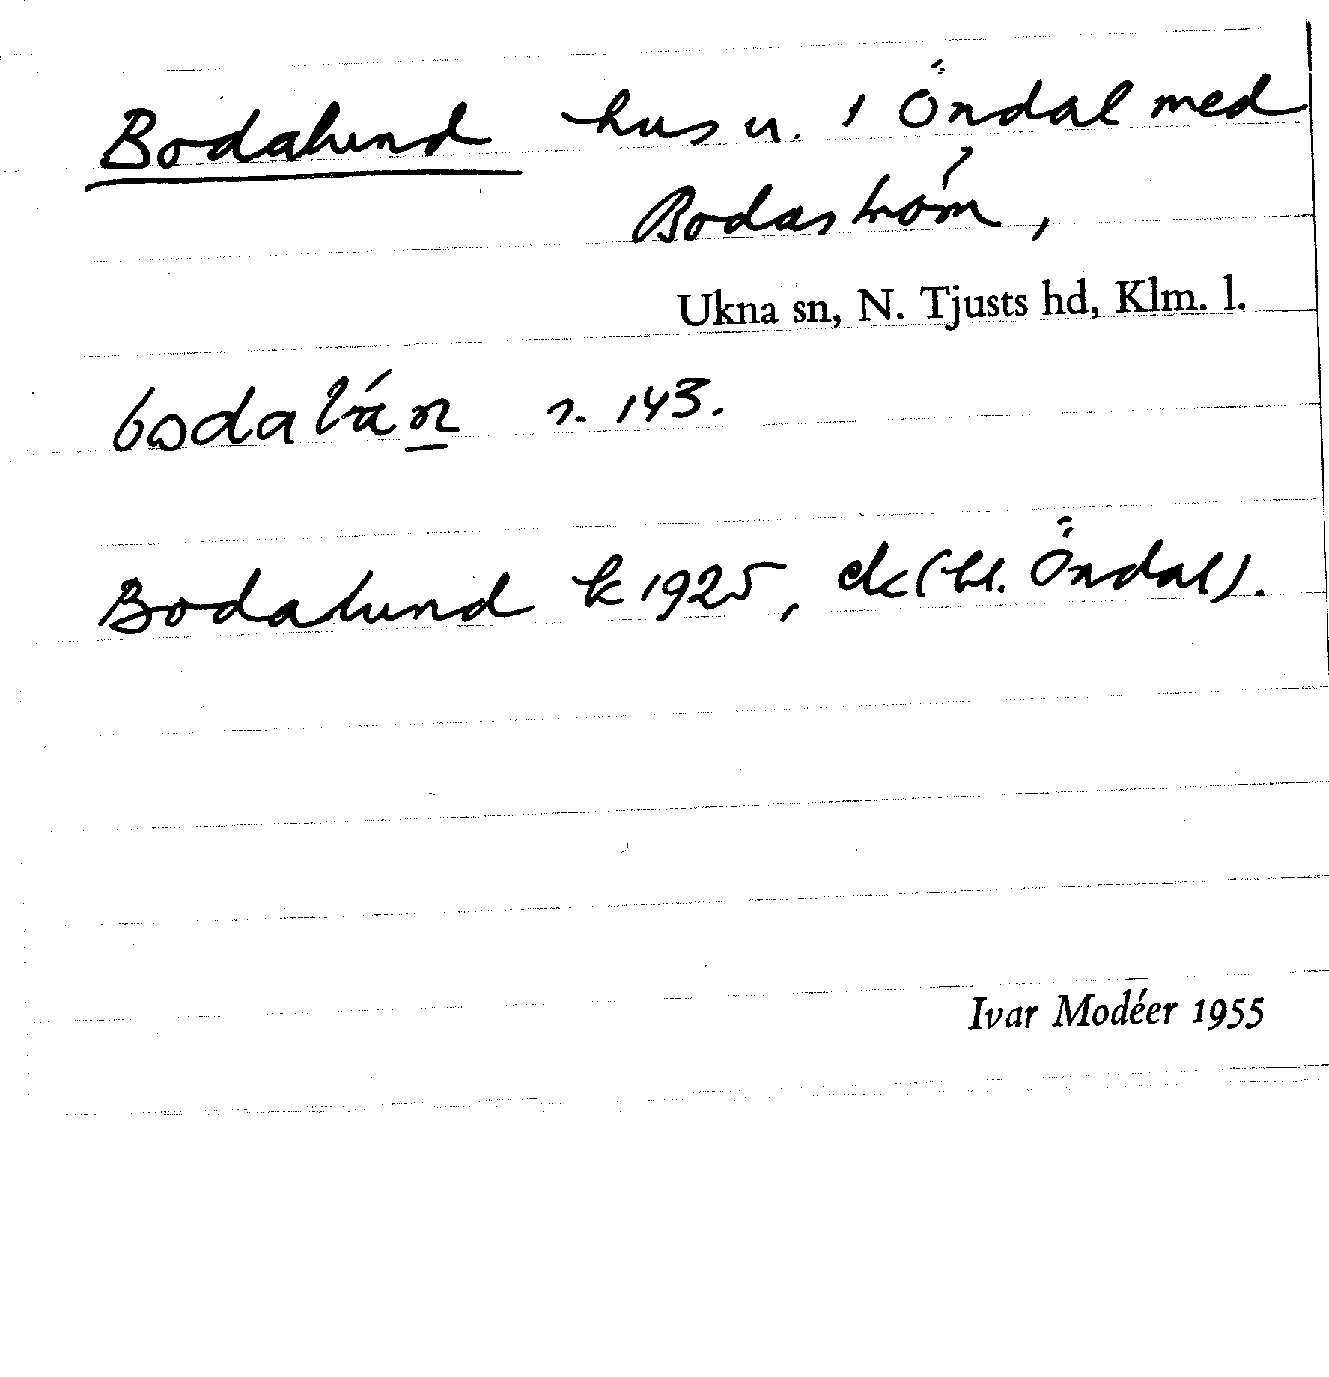 Bodalund hus u. 1 Öndal med
Bodaström,
Ukna sn, N. Tjusts hd, Klm. l.
s. 143.
Bodalund k 1925, ek (bl. Öndal).
Ivar Modéer 1955